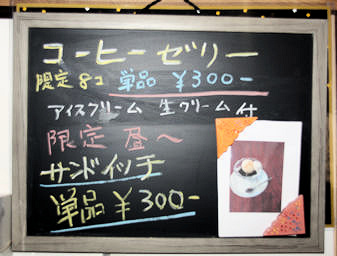 コーヒーゼリー
限定 8コ 単品 ¥300-
アイスクリーム 生クリーム 付
限定 昼〜
サンドイッチ
単品 ¥300-